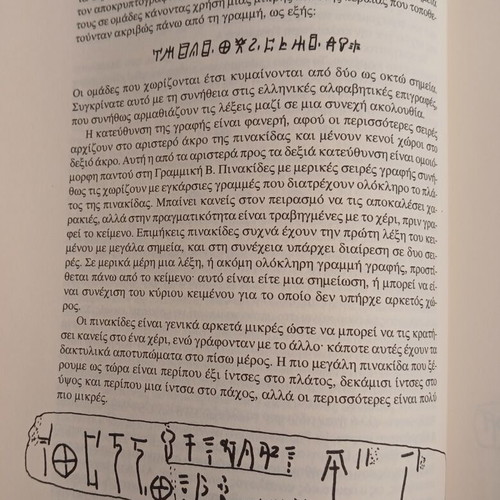 τον αποκρυπτογράφο
τους σε ομάδες κάνοντας χρήση μιας μικρής που τοποθε-
τούνταν ακριβώς πάνω από τη γραμμή, ως εξής:
Οι ομάδες που χωρίζονται έτσι κυμαίνονται από δύο ως οκτώ σημεία.
Συγκρίνατε αυτό με τη συνήθεια στις ελληνικές αλφαβητικές επιγραφές,
που συνήθως αρμαθιάζουν τις λέξεις μαζί σε μια συνεχή ακολουθία.
Η κατεύθυνση της γραφής είναι φανερή, αφού οι περισσότερες σειρές
αρχίζουν στο αριστερό άκρο της πινακίδας και μένουν κενοί χώροι στο
δεξιό άκρο. Αυτή η από τα αριστερά προς τα δεξιά κατεύθυνση είναι ομοιό-
μορφη παντού στη Γραμμική Β. Πινακίδες με μερικές σειρές γραφής συνή-
θως τις χωρίζουν με εγκάρσιες γραμμές που διατρέχουν ολόκληρο το πλά-
τος της πινακίδας. Μπαίνει κανείς στον πειρασμό να τις αποκαλέσει χα-
ρακιές, αλλά στην πραγματικότητα είναι τραβηγμένες με το χέρι, πριν γρα-
φεί το κείμενο. Επιμήκεις πινακίδες συχνά έχουν την πρώτη λέξη του κει-
μένου με μεγάλα σημεία, και στη συνέχεια υπάρχει διαίρεση σε δυο σει-
ρές. Σε μερικά μέρη μια λέξη, ή ακόμη ολόκληρη γραμμή γραφής, προστί-
θεται πάνω από το κείμενο· αυτό είναι είτε μια σημείωση, ή μπορεί να εί-
ναι συνέχιση του κύριου κειμένου για το οποίο δεν υπήρχε αρκετός χώ-
ρος.
Οι πινακίδες είναι γενικά αρκετά μικρές ώστε να μπορεί να τις κρατή-
σει κανείς στο ένα χέρι, ενώ γράφονταν με το άλλο· κάποτε αυτές έχουν τα
δακτυλικά αποτυπώματα στο πίσω μέρος. Η πιο μεγάλη πινακίδα που ξέ-
ρουμε ως τώρα είναι περίπου έξι ίντσες στο πλάτος, δεκάμισι ίντσες στο
ύψος και περίπου μια ίντσα στο πάχος, αλλά οι περισσότερες είναι πολύ
πιο μικρές.